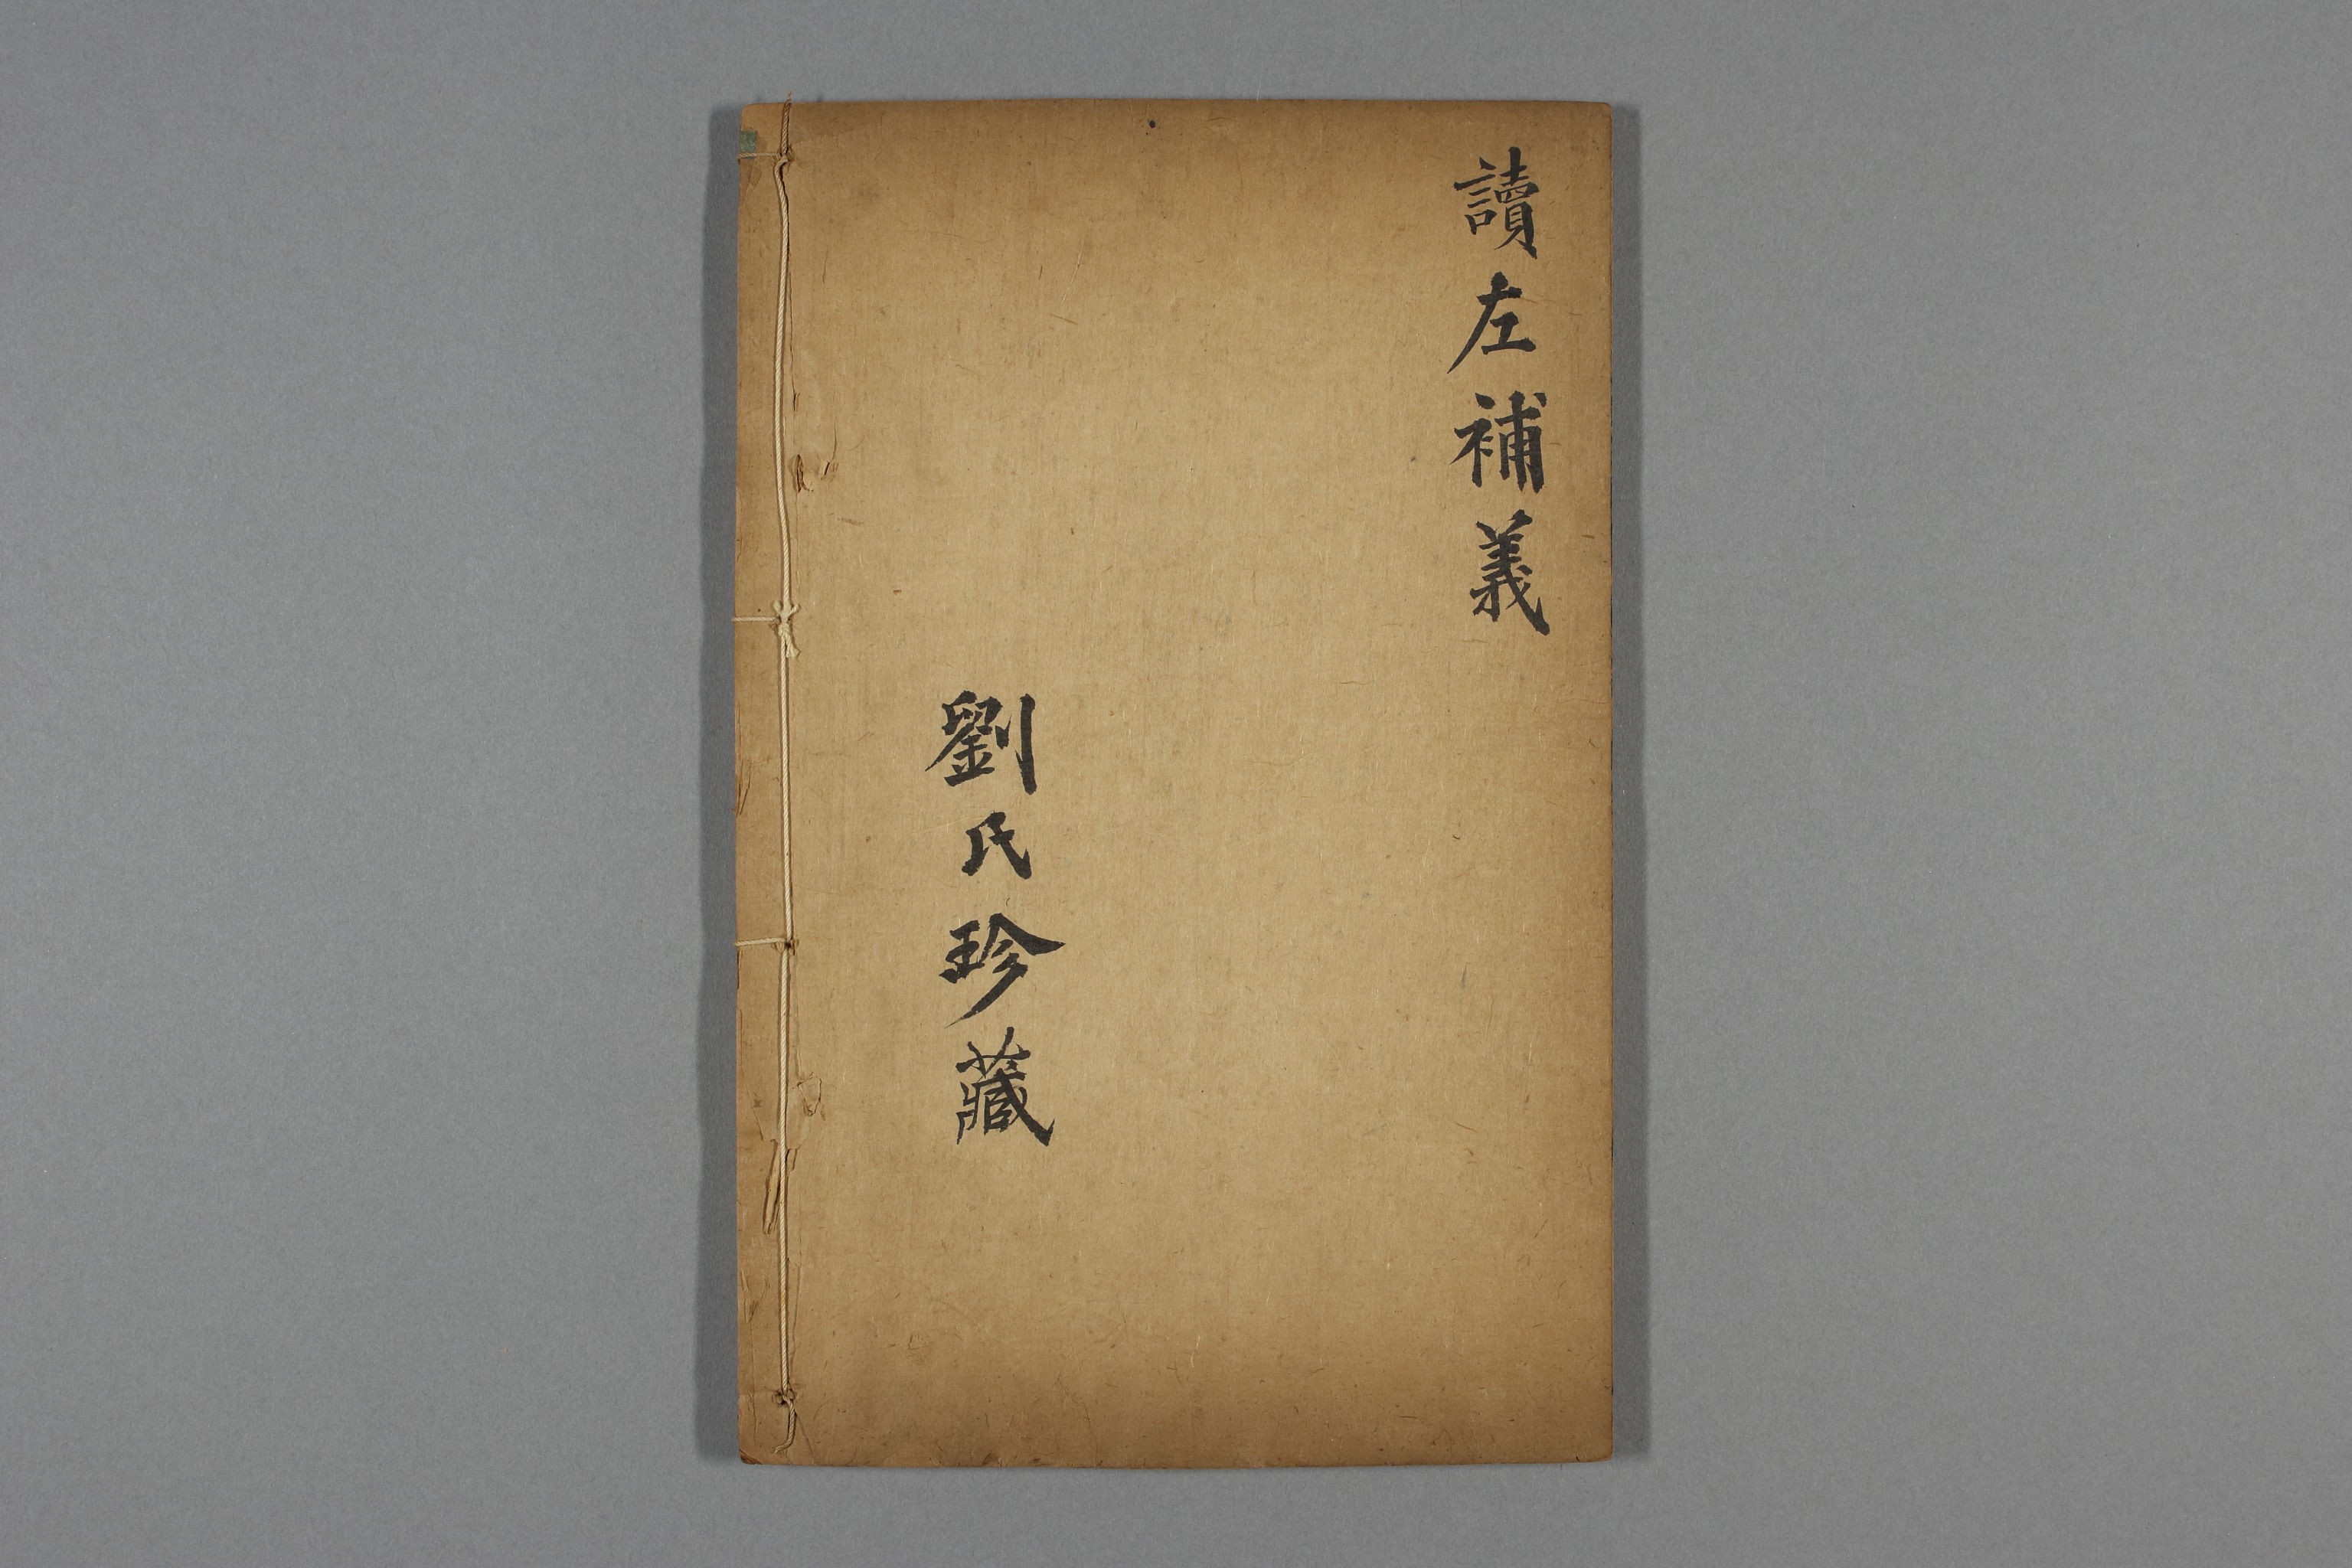 讀左補義
劉氏珍藏